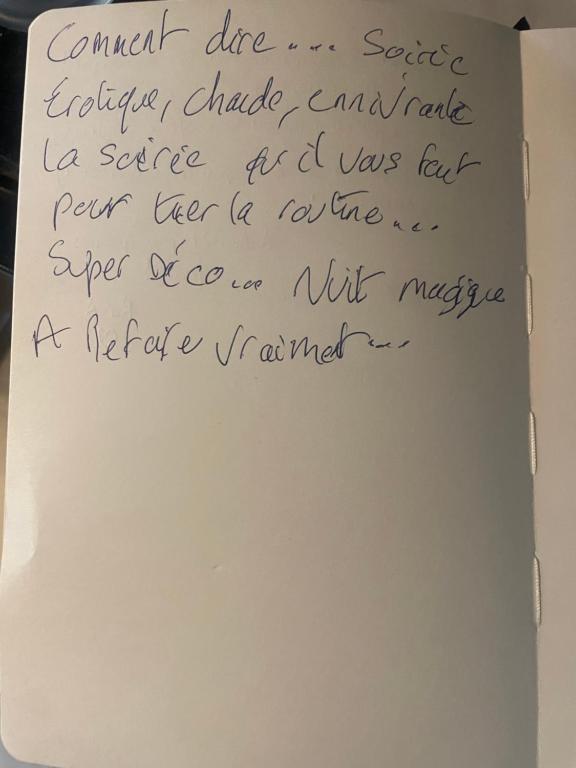 Comment dire.... Soirée
Érotique, chaude, ennivrante
La soirée qu'il vous faut
pour tuer la routine...
Super Déco... Nuit magique
A Refaire vraiment...